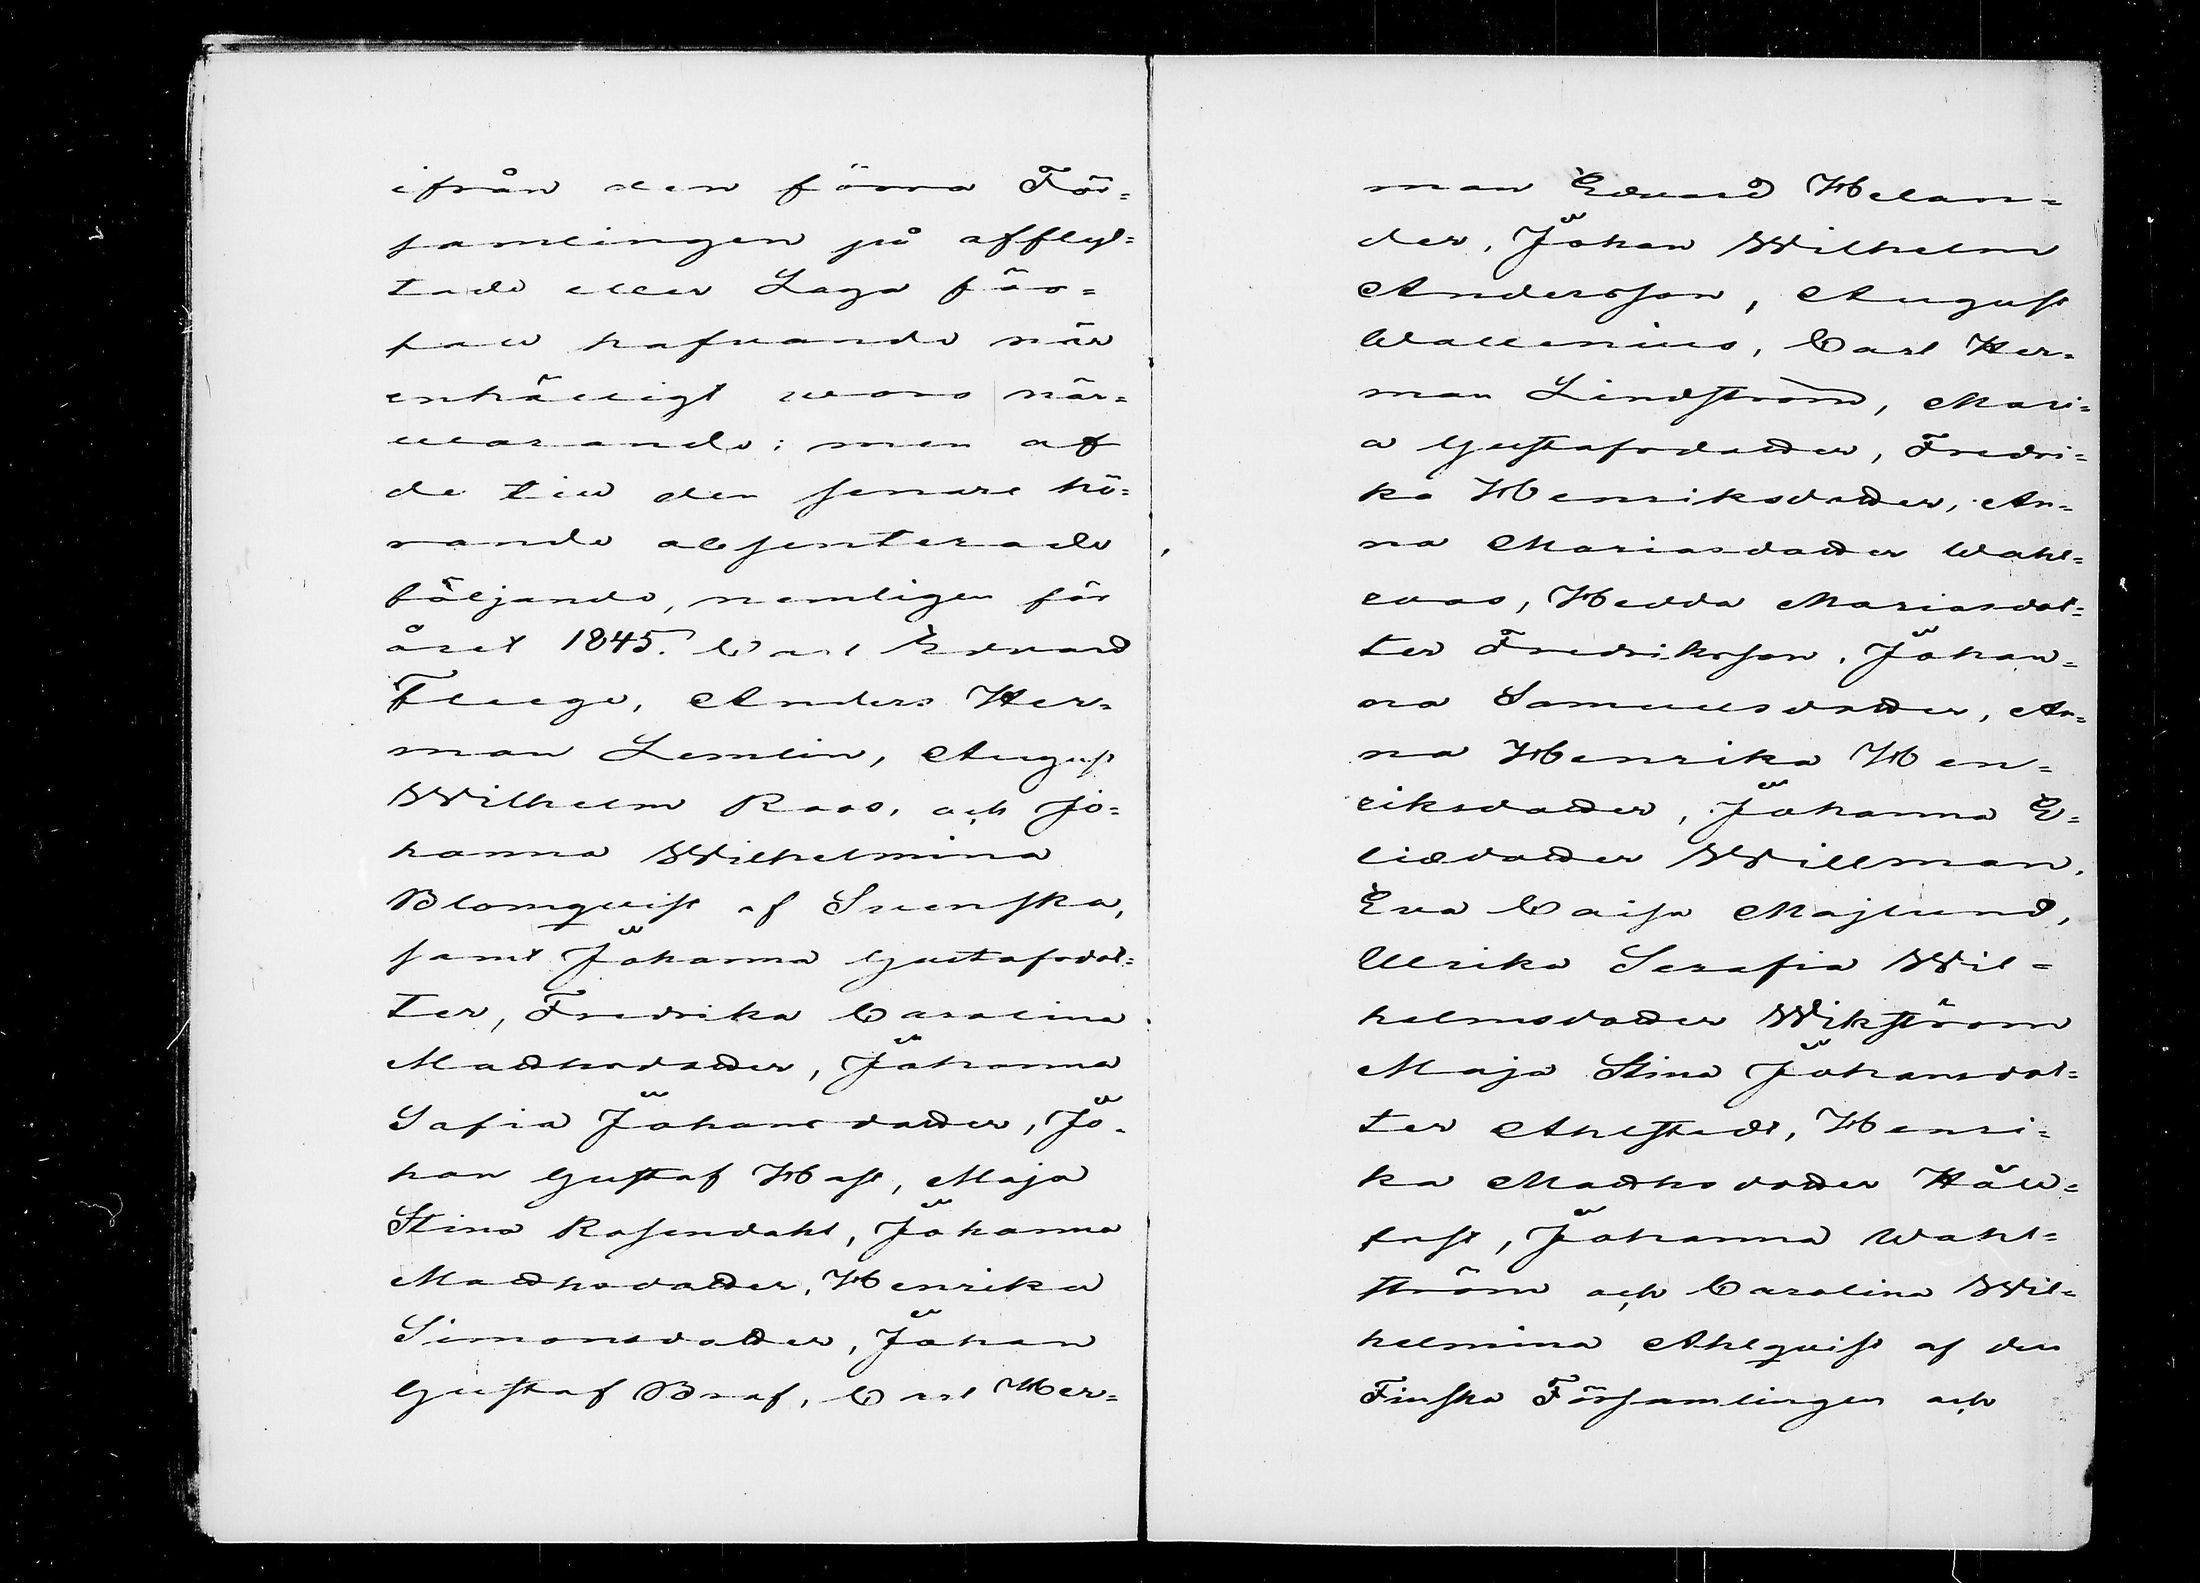 ifrån den förra För=
samlingen på afflyt=
tade eller Laga för=
fall hafvande när
enhälligt woro när=
warande; men af
de till den senare hö=
rande absenterade
följande, nemligen för
året 1845. Carl Edvard
Fleege, Anders Her=
man Lemlin, August
Wilhelm Roos, och Jo=
hanna Wilhelmina
Blomqvist af Svenska,
samt Johanna Gustafsdot=
ter, Fredrika Carolina
Mathsdotter, Johanna
Sofia Johansdotter, Jo=
han Gustaf Hast, Maja
Stina Rosendahl, Johanna
Mathsdotter, Henrika
Simonsdotter, Johan
Gustaf Braf, Carl Her=
man Edvard Helan=
der, Johan Wilhelm
Andersson, August
Wallenius, Carl Her=
man Lindström, Mari=
a Gustafsdotter, Fredri=
ka Henriksdotter, An=
na Mariasdotter Wahl=
roos, Hedda Mariasdot=
ter Fredriksson, Johan=
na Samuelsdotter, An=
na Henrika Hen=
riksdotter, Johanna E=
liædotter Willman,
Eva Caisa Majlund,
Ulrika Serafia Wil=
helmsdotter Wikström
Maja Stina Johansdot=
ter Ahlstedt, Henri=
ka Mathsdotter Häll=
fast, Johanna Wahl=
ström och Carolina Wil=
helmina Ahlqvist af den
Finska Församlingen och